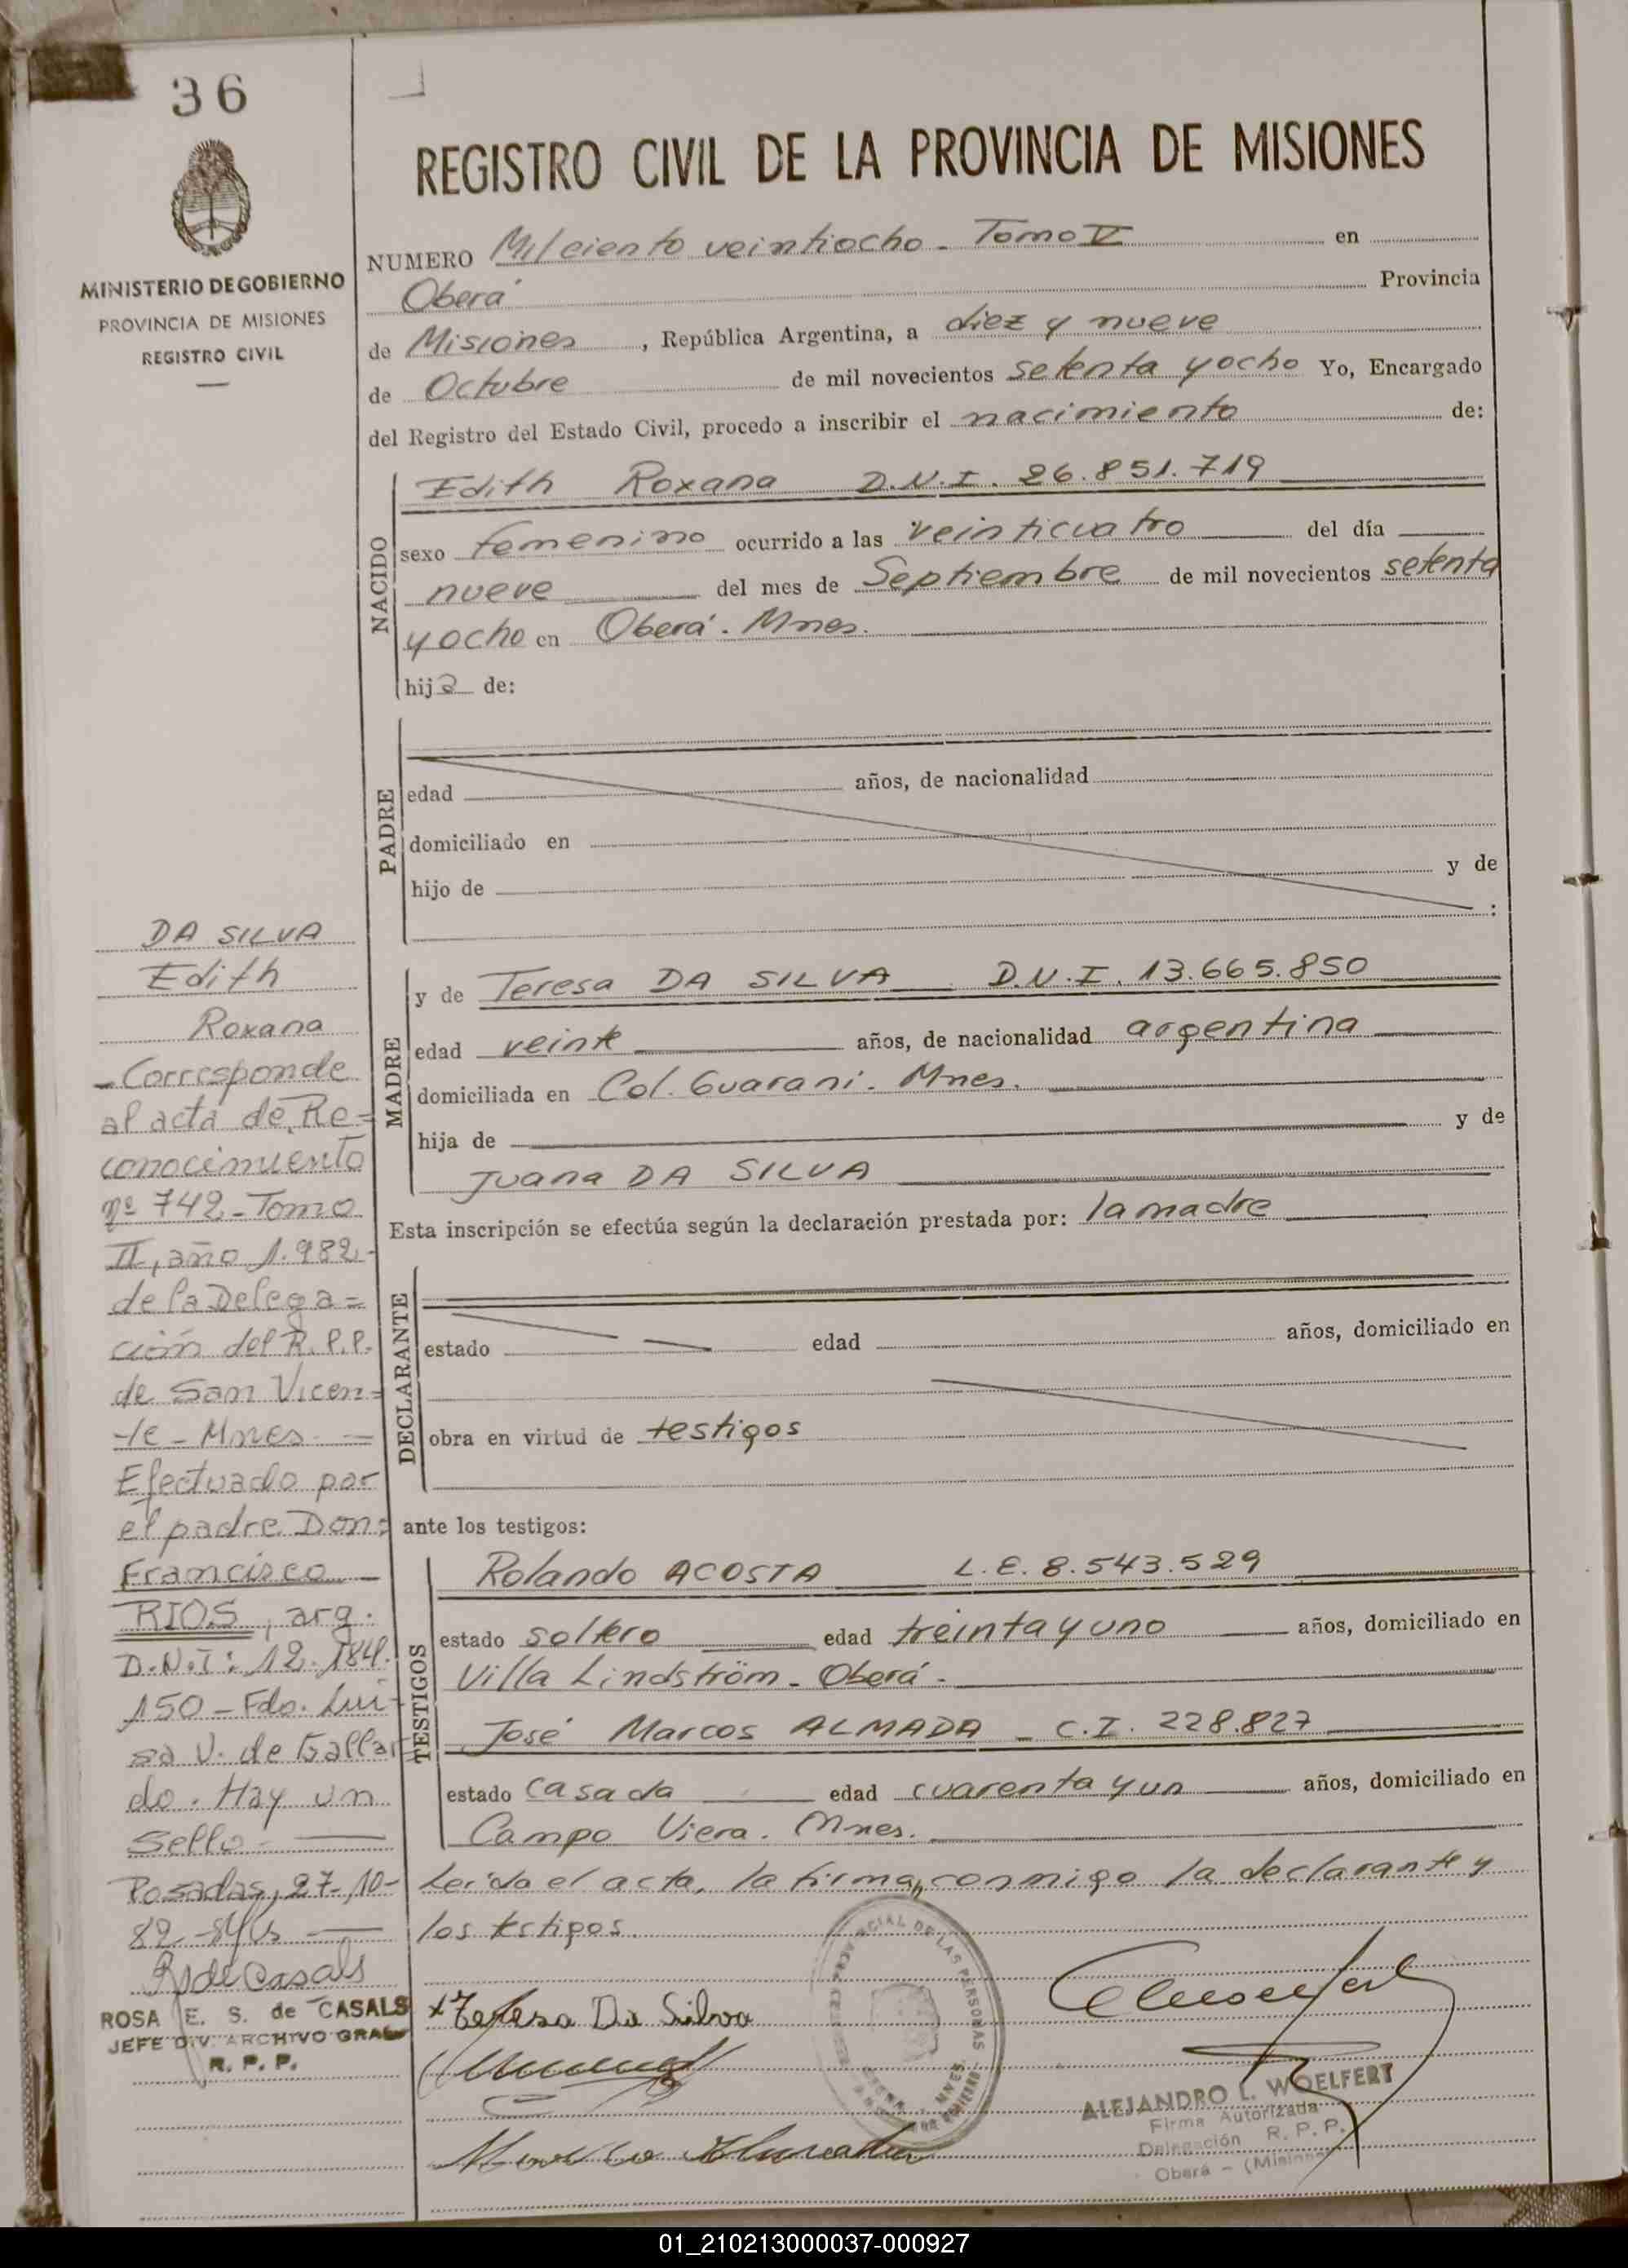 36
MINISTERIO DE GOBIERNO
PROVINCIA DE MISIONES
REGISTRO CIVIL
REGISTRO CIVIL DE LA PROVINCIA DE MISIONES
NUMERO Mil ciento veintiocho - Tomo V en
Oberá Provincia
de Misiones, República Argentina, a diez y nueve
de Octubre de mil novecientos setenta y ocho Yo, Encargado
del Registro del Estado Civil, procedo a inscribir el nacimiento de:
NACIDO
Edith Roxana D.N.I. 26.851.719
sexo femenino ocurrido a las veinticuatro del día
nueve del mes de Septiembre de mil novecientos setenta
y ocho en Oberá. Mnes.
hija de:
PADRE
edad años, de nacionalidad
domiciliado en
hijo de y de
:
MADRE
y de Teresa DA SILVA D.N.I. 13.665.850
edad veinte años, de nacionalidad argentina
domiciliada en Col. Guarani. Mnes.
hija de y de
Juana DA SILVA
Esta inscripción se efectúa según la declaración prestada por: la madre
DECLARANTE
estado edad años, domiciliado en
obra en virtud de testigos
ante los testigos:
TESTIGOS
Rolando ACOSTA L.E. 8.543.529
estado soltero edad treinta y uno años, domiciliado en
Villa Lindström - Oberá -
José Marcos ALMADA - C.I. 228.827
estado casado edad cuarenta y un años, domiciliado en
Campo Viera. Mnes.
Leída el acta, la firman conmigo la declarante y
los testigos.
x Teresa Da Silva
ALEJANDRO L. WOELFERT
Firma Autorizada
Delegación R. P. P.
Oberá - (Misiones)
DA SILVA
Edith
Roxana
- Corresponde
al acta de Re=
conocimiento
nº 742 - Tomo
II, año 1.982 -
de la Delega=
ción del R.P.P.
de San Vicen=
te - Mnes -
Efectuado por
el padre Don:
Francisco
RIOS, arg.
D.N.I: 12.184.
150 - Fdo. Lui-
sa V. de Gallar
do. Hay un
Sello -
Posadas, 27-10-
82
R de Casals
ROSA E. S. de CASALS
JEFE DIV. ARCHIVO GRAL
R. P. P.
01_210213000037-000927